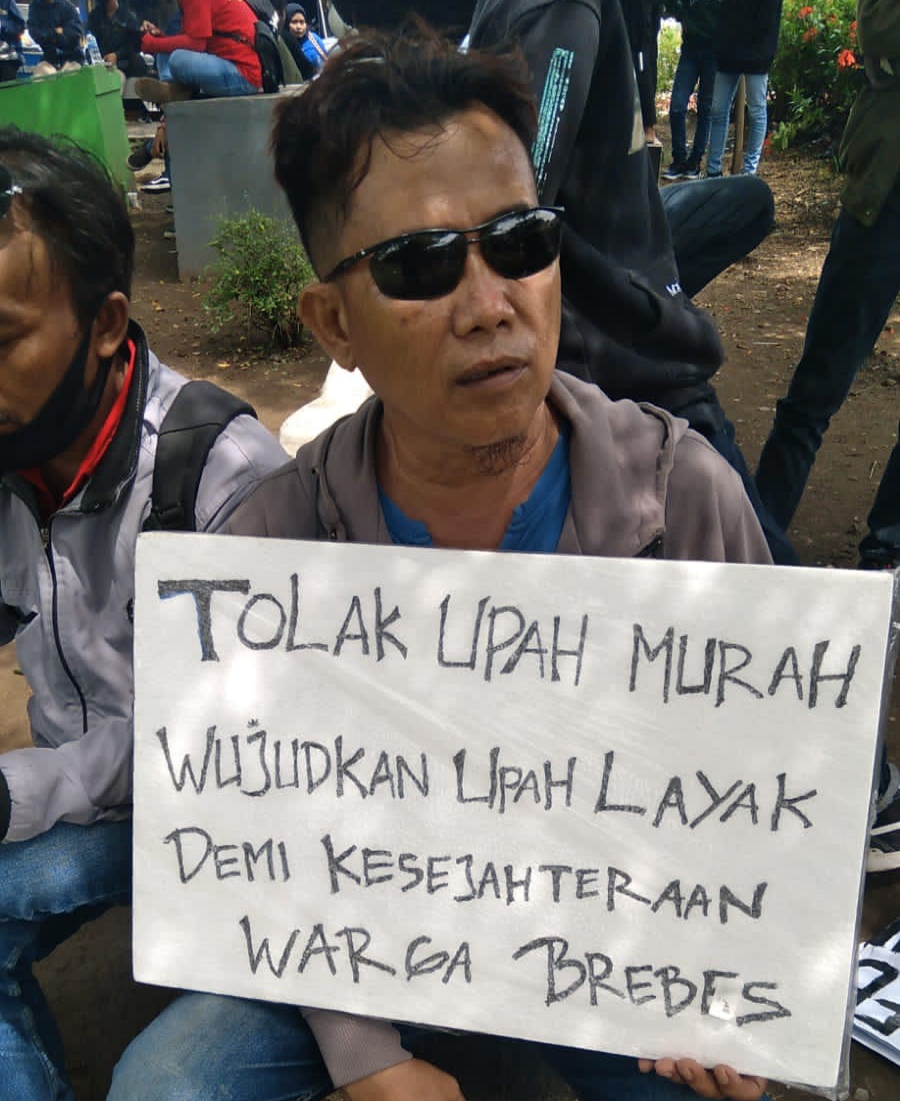 TOLAK UPAH MURAH
WUJUDKAN UPAH LAYAK
DEMI KESEJAHTERAAN
WARGA BREBES